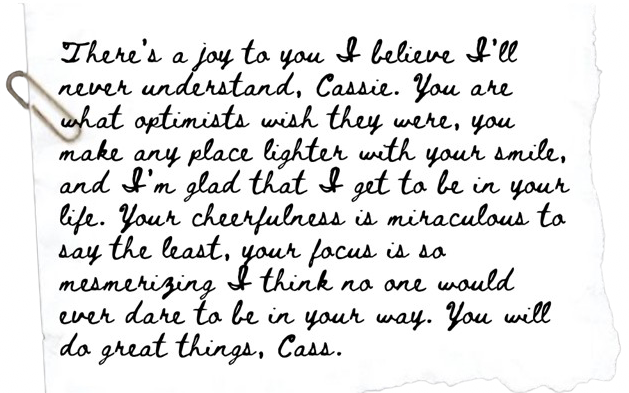 There's a joy to you I believe I'll
never understand, Cassie. You are
what optimists wish they were, you
make any place lighter with your smile,
and I'm glad that I get to be in your
life. Your cheerfulness is miraculous to
say the least, your focus is so
mesmerizing I think no one would
ever dare to be in your way. You will
do great things, Cass.